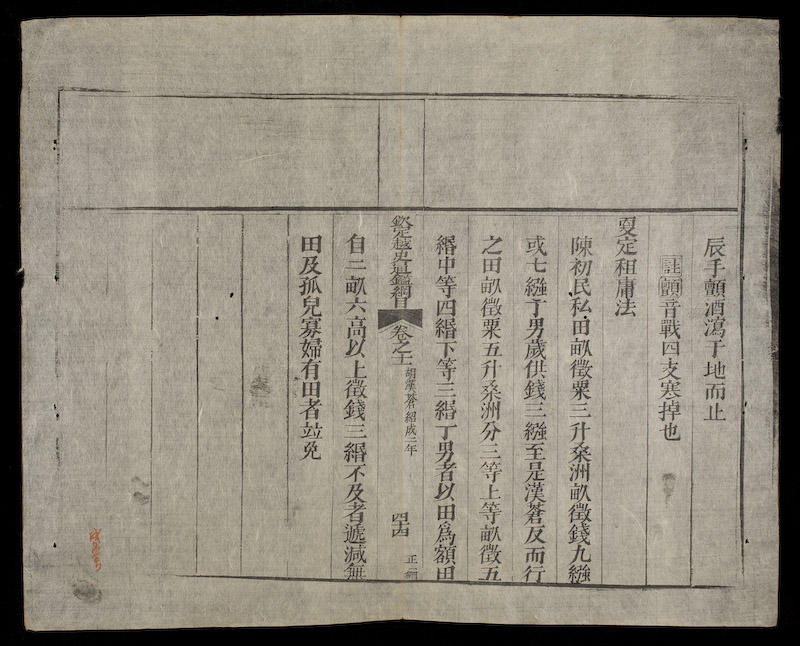 辰手顫酒瀉于地而止
註顫音戰四支寒掉也
夏定租庸法
陳初民私田畝徵粟三升桑洲畝徵錢九緡
或七緡丁男歲供錢三緡至是漢蒼反而行
之田畝徵粟五升桑洲分三等上等畝徵五
緡中等四緡下等三緡丁男者以田爲額田
欽定越史通鑑綱目 卷之十二 胡漢蒼紹成二年 四十四 正編
自二畝六高以上徵錢三緡不及者遞減無
田及孤兒寡婦有田者竝免